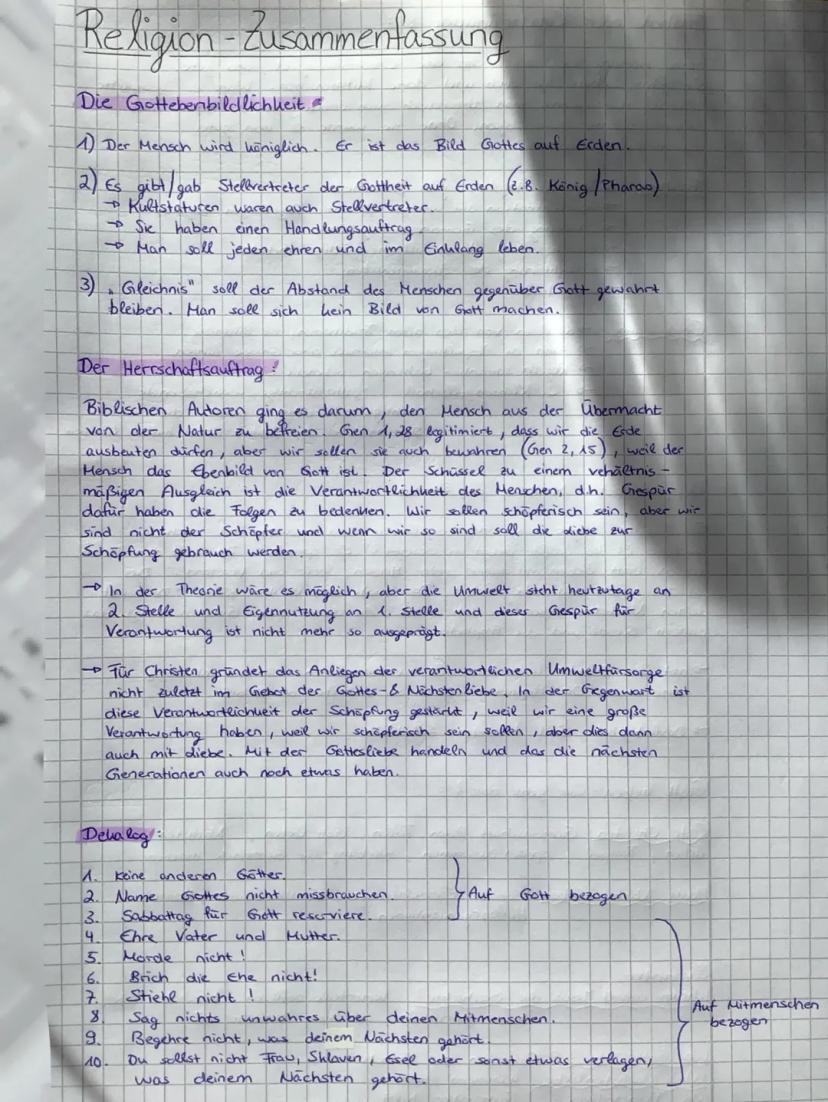 Religion - Zusammenfassung
Die Gottebenbildlichkeit:
1) Der Mensch wird königlich. Er ist das Bild Gottes auf Erden.
2) Es gibt/gab Stellvertreter der Gottheit auf Erden (z.B. König/Pharao)
→ Kultstaturen waren auch Stellvertreter.
→ Sie haben einen Handlungsauftrag
→ Man soll jeden ehren und im Einklang leben.
3) „Gleichnis" soll der Abstand des Menschen gegenüber Gott gewahrt
bleiben. Man soll sich kein Bild von Gott machen.
Der Herrschaftsauftrag:
Biblischen Autoren ging es darum, den Mensch aus der Übermacht
von der Natur zu befreien. Gen 1,28 legitimiert, dass wir die Erde
ausbeuten dürfen, aber wir sollen sie auch bewahren (Gen 2,15), weil der
Mensch das Ebenbild von Gott ist. Der Schüssel zu einem vehältnis-
mäßigen Ausgleich ist die Verantwortlichkeit des Menschen, d.h. Gespür
dafür haben die Folgen zu bedenken. Wir sollen schöpferisch sein, aber wir
sind nicht der Schöpfer und wenn wir so sind soll die Liebe zur
Schöpfung gebrauch werden.
→ In der Theorie wäre es möglich, aber die Umwelt steht heutzutage an
2. Stelle und Eigennutzung an 1. Stelle und dieses Gespür für
Verantwortung ist nicht mehr so ausgeprägt.
→ Für Christen gründet das Anliegen der verantwortlichen Umweltfürsorge
nicht zuletzt im Gebot der Gottes- & Nächstenliebe. In der Gegenwart ist
diese Verantwortlichkeit der Schöpfung gestärkt, weil wir eine große
Verantwortung haben, weil wir schöpferisch sein sollen, aber dies dann
auch mit Liebe. Mit der Gottesliebe handeln und das die nächsten
Generationen auch noch etwas haben.
Dekalog:
1. Keine anderen Götter.
2. Name Gottes nicht missbrauchen.
Auf Gott bezogen
3. Sabbattag für Gott reserviere.
4. Ehre Vater und Mutter.
5. Morde nicht!
6. Brich die Ehe nicht!
7. Stiehl nicht!
8. Sag nichts unwahres über deinen Mitmenschen.
Auf Mitmenschen
bezogen
9. Begehre nicht, was deinem Nächsten gehört.
10. Du sollst nicht Frau, Sklaven, Esel oder sonst etwas verlagen,
was deinem Nächsten gehört.